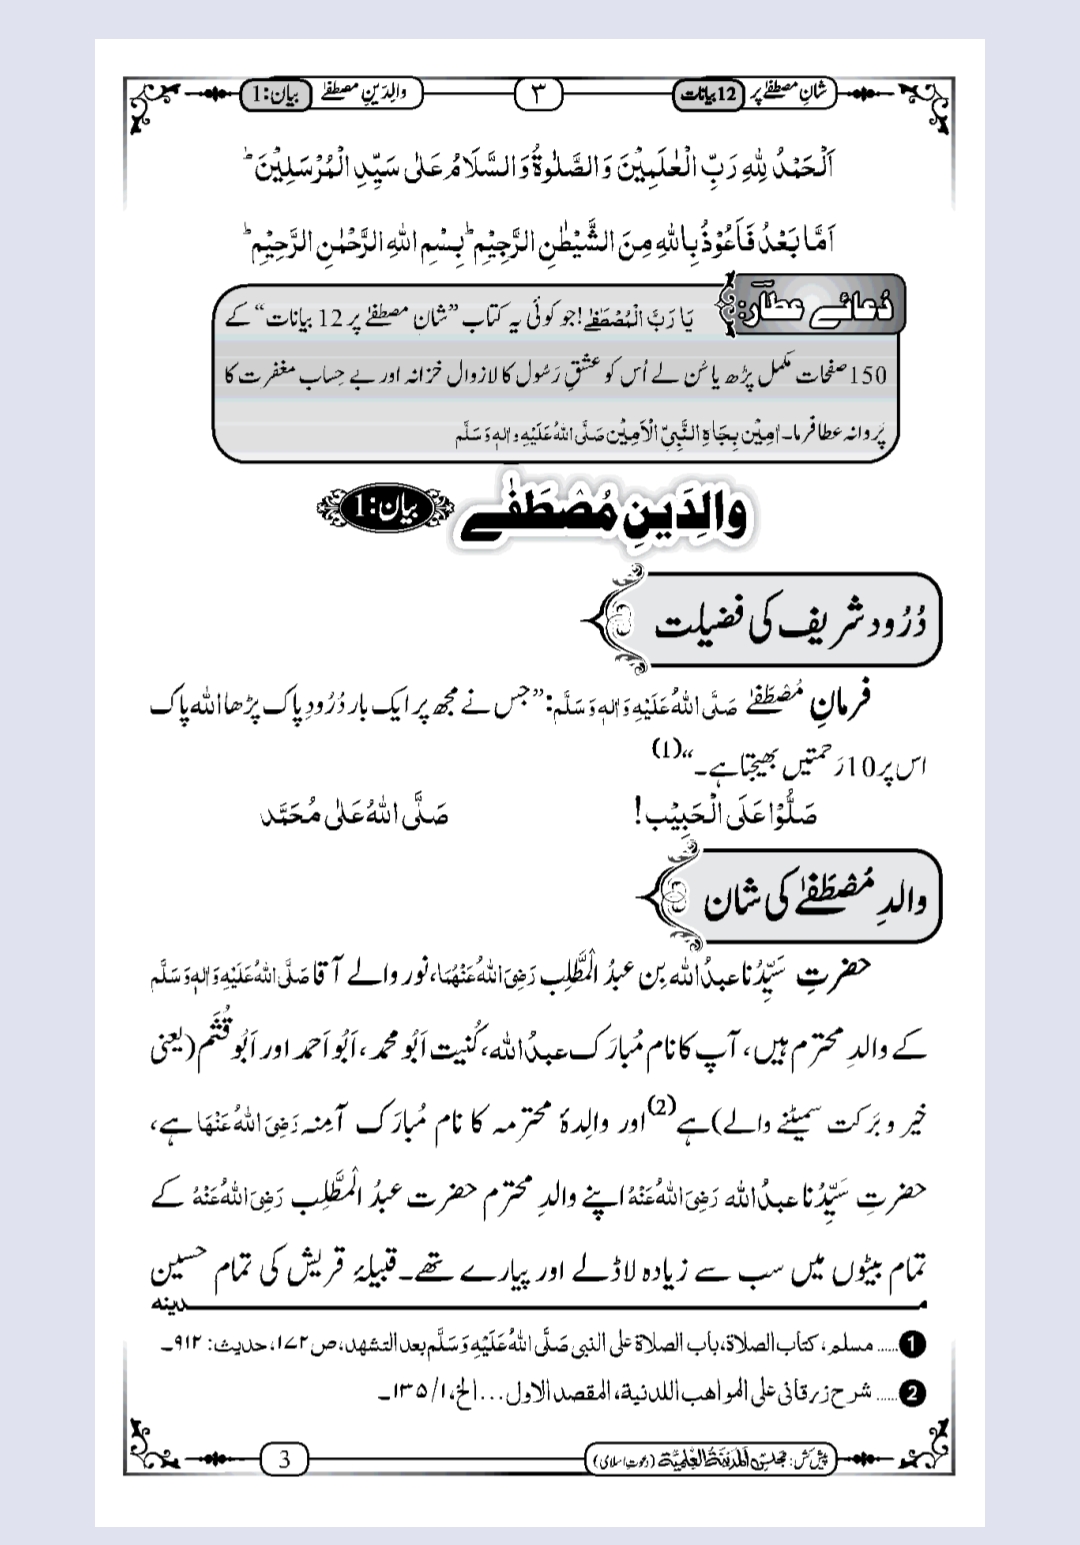 شانِ مصطفےٰ پر 12 بیانات
۳
والِدَینِ مصطفےٰ بیان:1
اَلْحَمْدُ لِلّٰهِ رَبِّ الْعٰلَمِيْنَ وَالصَّلٰوةُ وَالسَّلَامُ عَلٰى سَيِّدِ الْمُرْسَلِيْنَ ؕ
اَمَّا بَعْدُ فَاَعُوْذُ بِاللّٰهِ مِنَ الشَّيْطٰنِ الرَّجِيْمِ ؕ بِسْمِ اللّٰهِ الرَّحْمٰنِ الرَّحِيْمِ ؕ
دُعائے عطّار: يَا رَبَّ الْمُصْطَفٰے!جو کوئی یہ کتاب ”شان مصطفےٰ پر 12 بیانات“ کے
150صفحات مکمل پڑھ یا سُن لے اُس کو عشقِ رَسُول کا لازوال خزانہ اور بے حِساب مغفرت کا
پَروانہ عطا فرما۔ اٰمِيْن بِجَاهِ النَّبِيِّ الْاَمِيْن صَلَّى اللّٰهُ عَلَيْهِ واٰلِهٖ وَسَلَّم
والِدَینِ مُصْطَفٰے بیان:1
دُرُود شریف کی فضیلت
فرمانِ مُصْطَفٰے صَلَّى اللّٰهُ عَلَيْهِ وَاٰلِهٖ وَسَلَّم:”جس نے مجھ پر ایک بار دُرُودِ پاک پڑھا اللہ پاک
اس پر 10رَحمتیں بھیجتا ہے۔“(1)
صَلُّوْا عَلَى الْحَبِيْب! صَلَّى اللّٰهُ عَلٰى مُحَمَّد
والدِ مُصْطَفٰے کی شان
حضرتِ سَیِّدُنا عبدُ اللہ بِن عبدُ الْمُطَّلِب رَضِیَ اللّٰهُ عَنْهُمَا،نور والے آقا صَلَّى اللّٰهُ عَلَيْهِ وَاٰلِهٖ وَسَلَّم
کے والدِ محترم ہیں، آپ کا نام مُبارَک عبدُ اللہ،کُنیت اَبُو محمد ،اَبُو اَحمد اور اَبُو قُثَم (یعنی
خیر و بَرَکت سمیٹنے والے)ہے(2)اور والِدۂ محترمہ کا نام مُبارَک آمِنہ رَضِیَ اللّٰهُ عَنْهَا ہے،
حضرتِ سَیِّدُنا عبدُ اللہ رَضِیَ اللّٰهُ عَنْهُ اپنے والدِ محترم حضرت عبدُ الْمُطَّلِب رَضِیَ اللّٰهُ عَنْهُ کے
تمام بیٹوں میں سب سے زیادہ لاڈلے اور پیارے تھے۔ قبیلۂ قریش کی تمام حسین
مـدینه
1 ..... مسلم، کتاب الصلاة، باب الصلاة علی النبی صَلَّى اللّٰهُ عَلَيْهِ وَسَلَّم بعد التشهد، ص ۱۷۲، حدیث: ۹۱۲۔
2 ..... شرح زرقانی علی المواهب اللدنیة، المقصد الاول…الخ، ۱/ ۱۳۵۔
پیش کش: مجلس المدینة العلمیة (دعوت اسلامی)
3